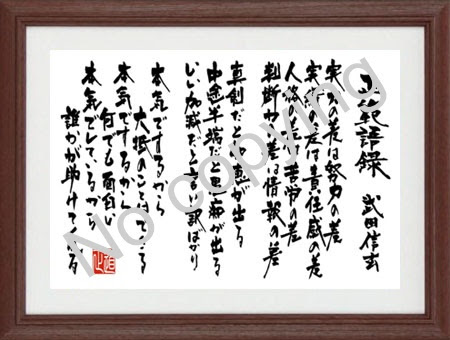 五範語録
武田信玄
実力の差は努力の差
実績の差は責任感の差
人格の差は苦労の差
判断力の差は情報の差
真剣だと知恵が出る
中途半端だと愚痴が出る
いい加減だと言い訳ばかり
本気でするから
大抵のことはできる
本気でするから
何でも面白い
本気でしているから
誰かが助けてくれる
No copying